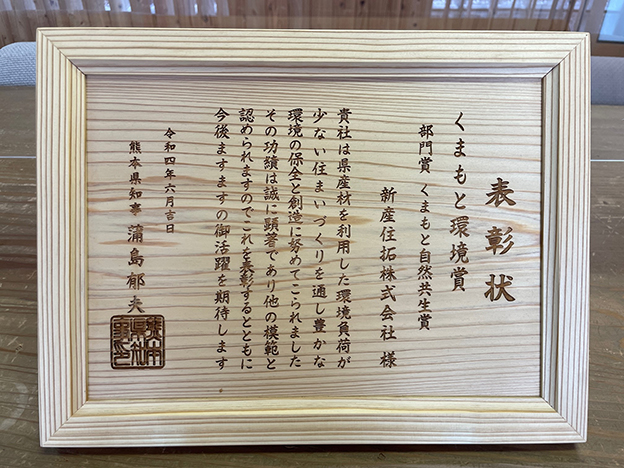 表彰状
くまもと環境賞
部門賞 くまもと自然共生賞
新産住拓株式会社 様
貴社は県産材を利用した環境負荷が
少ない住まいづくりを通し豊かな
環境の保全と創造に努めてこられました
その功績は誠に顕著であり他の模範と
認められますのでこれを表彰するとともに
今後ますますの御活躍を期待します
令和四年六月吉日
熊本県知事 蒲島郁夫